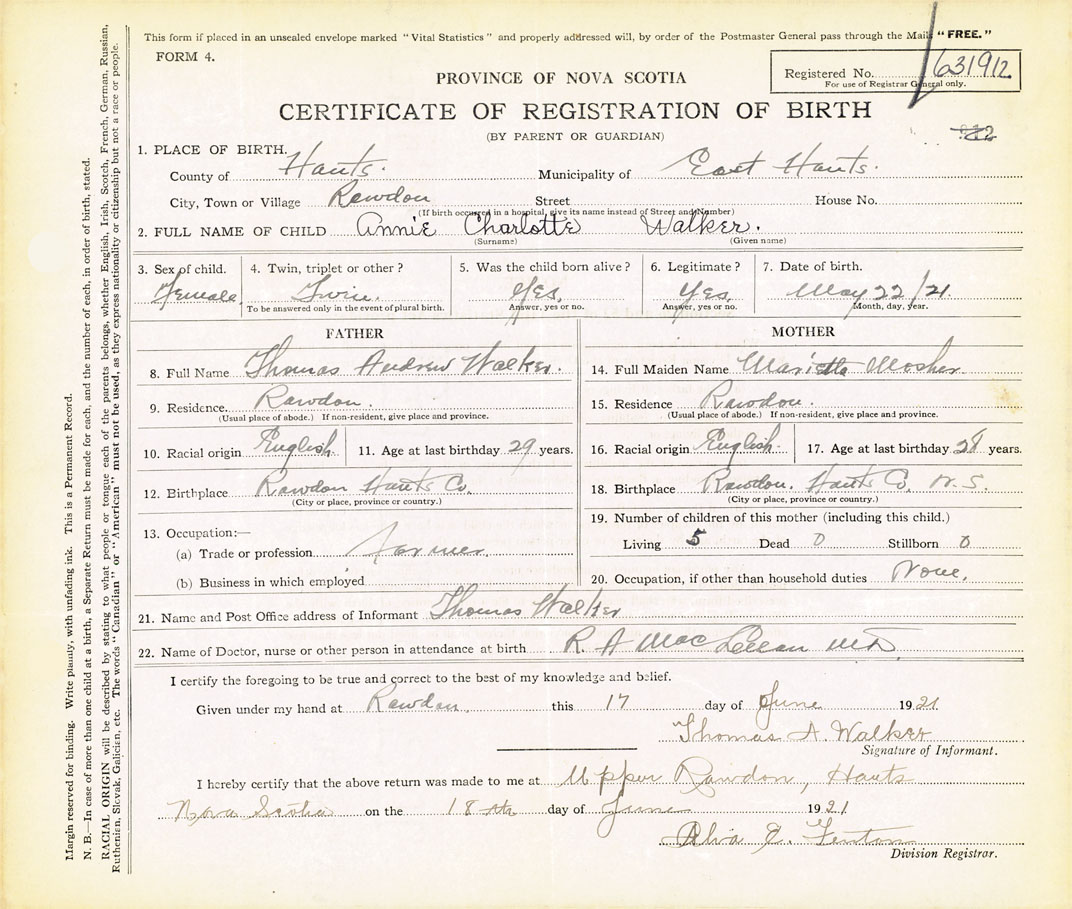 This form if placed in an unsealed envelope marked "Vital Statistics" and properly addressed will, by order of the Postmaster General pass through the Mail "FREE."
FORM 4.
Registered No. 631912
For use of Registrar General only.
PROVINCE OF NOVA SCOTIA
CERTIFICATE OF REGISTRATION OF BIRTH
(BY PARENT OR GUARDIAN)
1. PLACE OF BIRTH.
County of Hants. Municipality of East Hants.
City, Town or Village Rawdon Street House No.
(If birth occurred in a hospital, give its name instead of Street and Number)
2. FULL NAME OF CHILD Annie Charlotte Walker.
(Surname) (Given name)
3. Sex of child. 4. Twin, triplet or other? 5. Was the child born alive? 6. Legitimate? 7. Date of birth.
Female. Twin. Yes. Yes. May 22/21.
To be answered only in the event of plural birth. Answer, yes or no. Answer, yes or no. Month, day, year.
FATHER
8. Full Name Thomas Andrew Walker.
9. Residence. Rawdon.
(Usual place of abode.) If non-resident, give place and province.
10. Racial origin English 11. Age at last birthday 29 years.
12. Birthplace Rawdon Hants Co.
(City or place, province or country.)
13. Occupation:—
(a) Trade or profession farmer
(b) Business in which employed
MOTHER
14. Full Maiden Name Marietta Mosher
15. Residence Rawdon.
(Usual place of abode.) If non-resident, give place and province.
16. Racial origin English 17. Age at last birthday 28 years.
18. Birthplace Rawdon. Hants Co. N. S.
(City or place, province or country.)
19. Number of children of this mother (including this child.)
Living 5 Dead 0 Stillborn 0
20. Occupation, if other than household duties None.
21. Name and Post Office address of Informant Thomas Walker
22. Name of Doctor, nurse or other person in attendance at birth R. A MacLellan MD.
I certify the foregoing to be true and correct to the best of my knowledge and belief.
Given under my hand at Rawdon. this 17 day of June 1921
Thomas A. Walker
Signature of Informant.
I hereby certify that the above return was made to me at Upper Rawdon, Hants
Nova Scotia on the 18th day of June 1921
Alva E. Fenton
Division Registrar.
Margin reserved for binding. Write plainly, with unfading ink. This is a Permanent Record.
N. B.—In case of more than one child at a birth, a Separate Return must be made for each, and the number of each, in order of birth, stated.
RACIAL ORIGIN will be described by stating to what people or tongue each of the parents belongs, whether English, Irish, Scotch, French, German, Russian,
Ruthenian, Slovak, Galician, etc. The words "Canadian" or "American" must not be used, as they express nationality or citizenship but not a race or people.